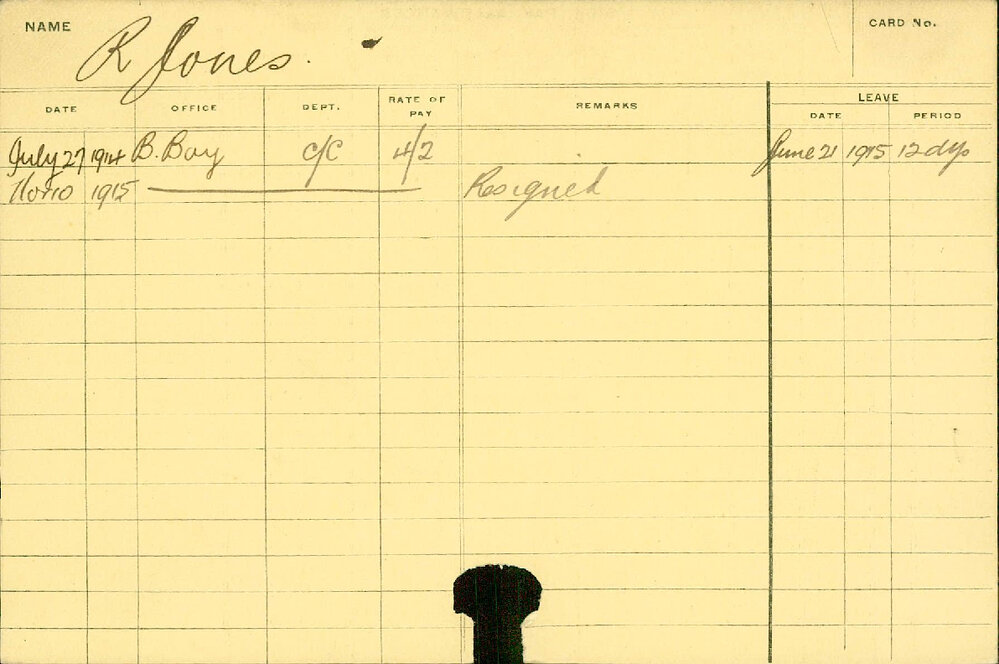 NAME R Jones. CARD No.
DATE OFFICE DEPT. RATE OF PAY REMARKS LEAVE DATE PERIOD
July 27 1914 B. Bay C/C 4/2 June 21 1915 12 dys
Nov 10 1915 Resigned